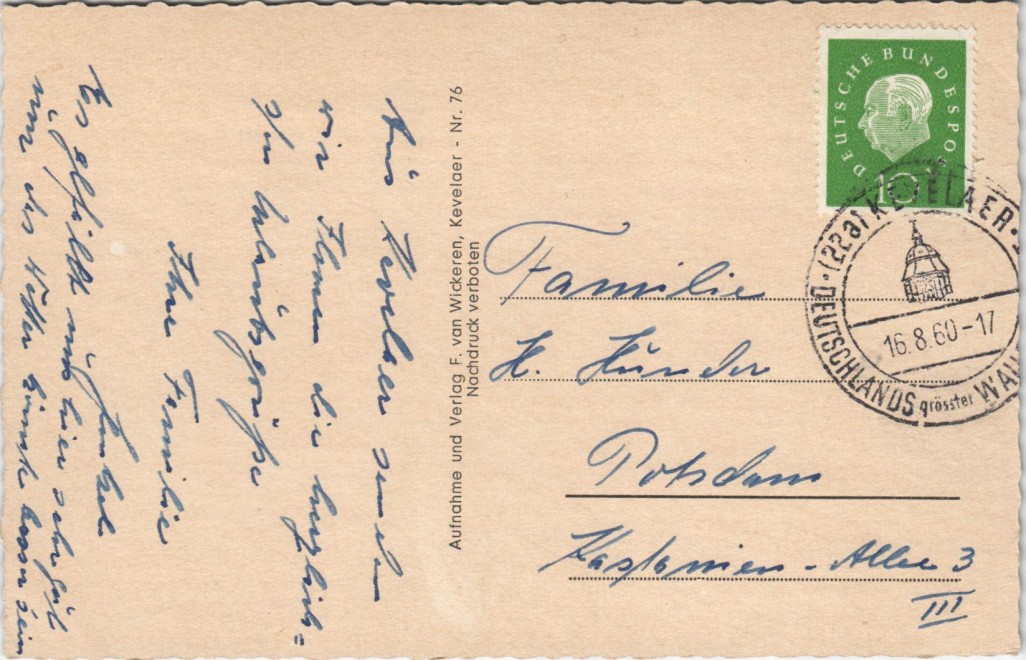 Aus Kevelaer senden
wir Ihnen die herzlich=
sten Urlaubsgrüße
Ihre Familie
Es gefällt uns hier sehr gut
nur das Wetter könnte besser sein
Aufnahme und Verlag F. van Wickeren, Kevelaer - Nr. 76
Nachdruck verboten
DEUTSCHE BUNDESPOST
10
(22a) KEVELAER
16.8.60-17
DEUTSCHLANDS grösster
Familie
H. Hünder
Potsdam
Kastanien-Allee 3
III